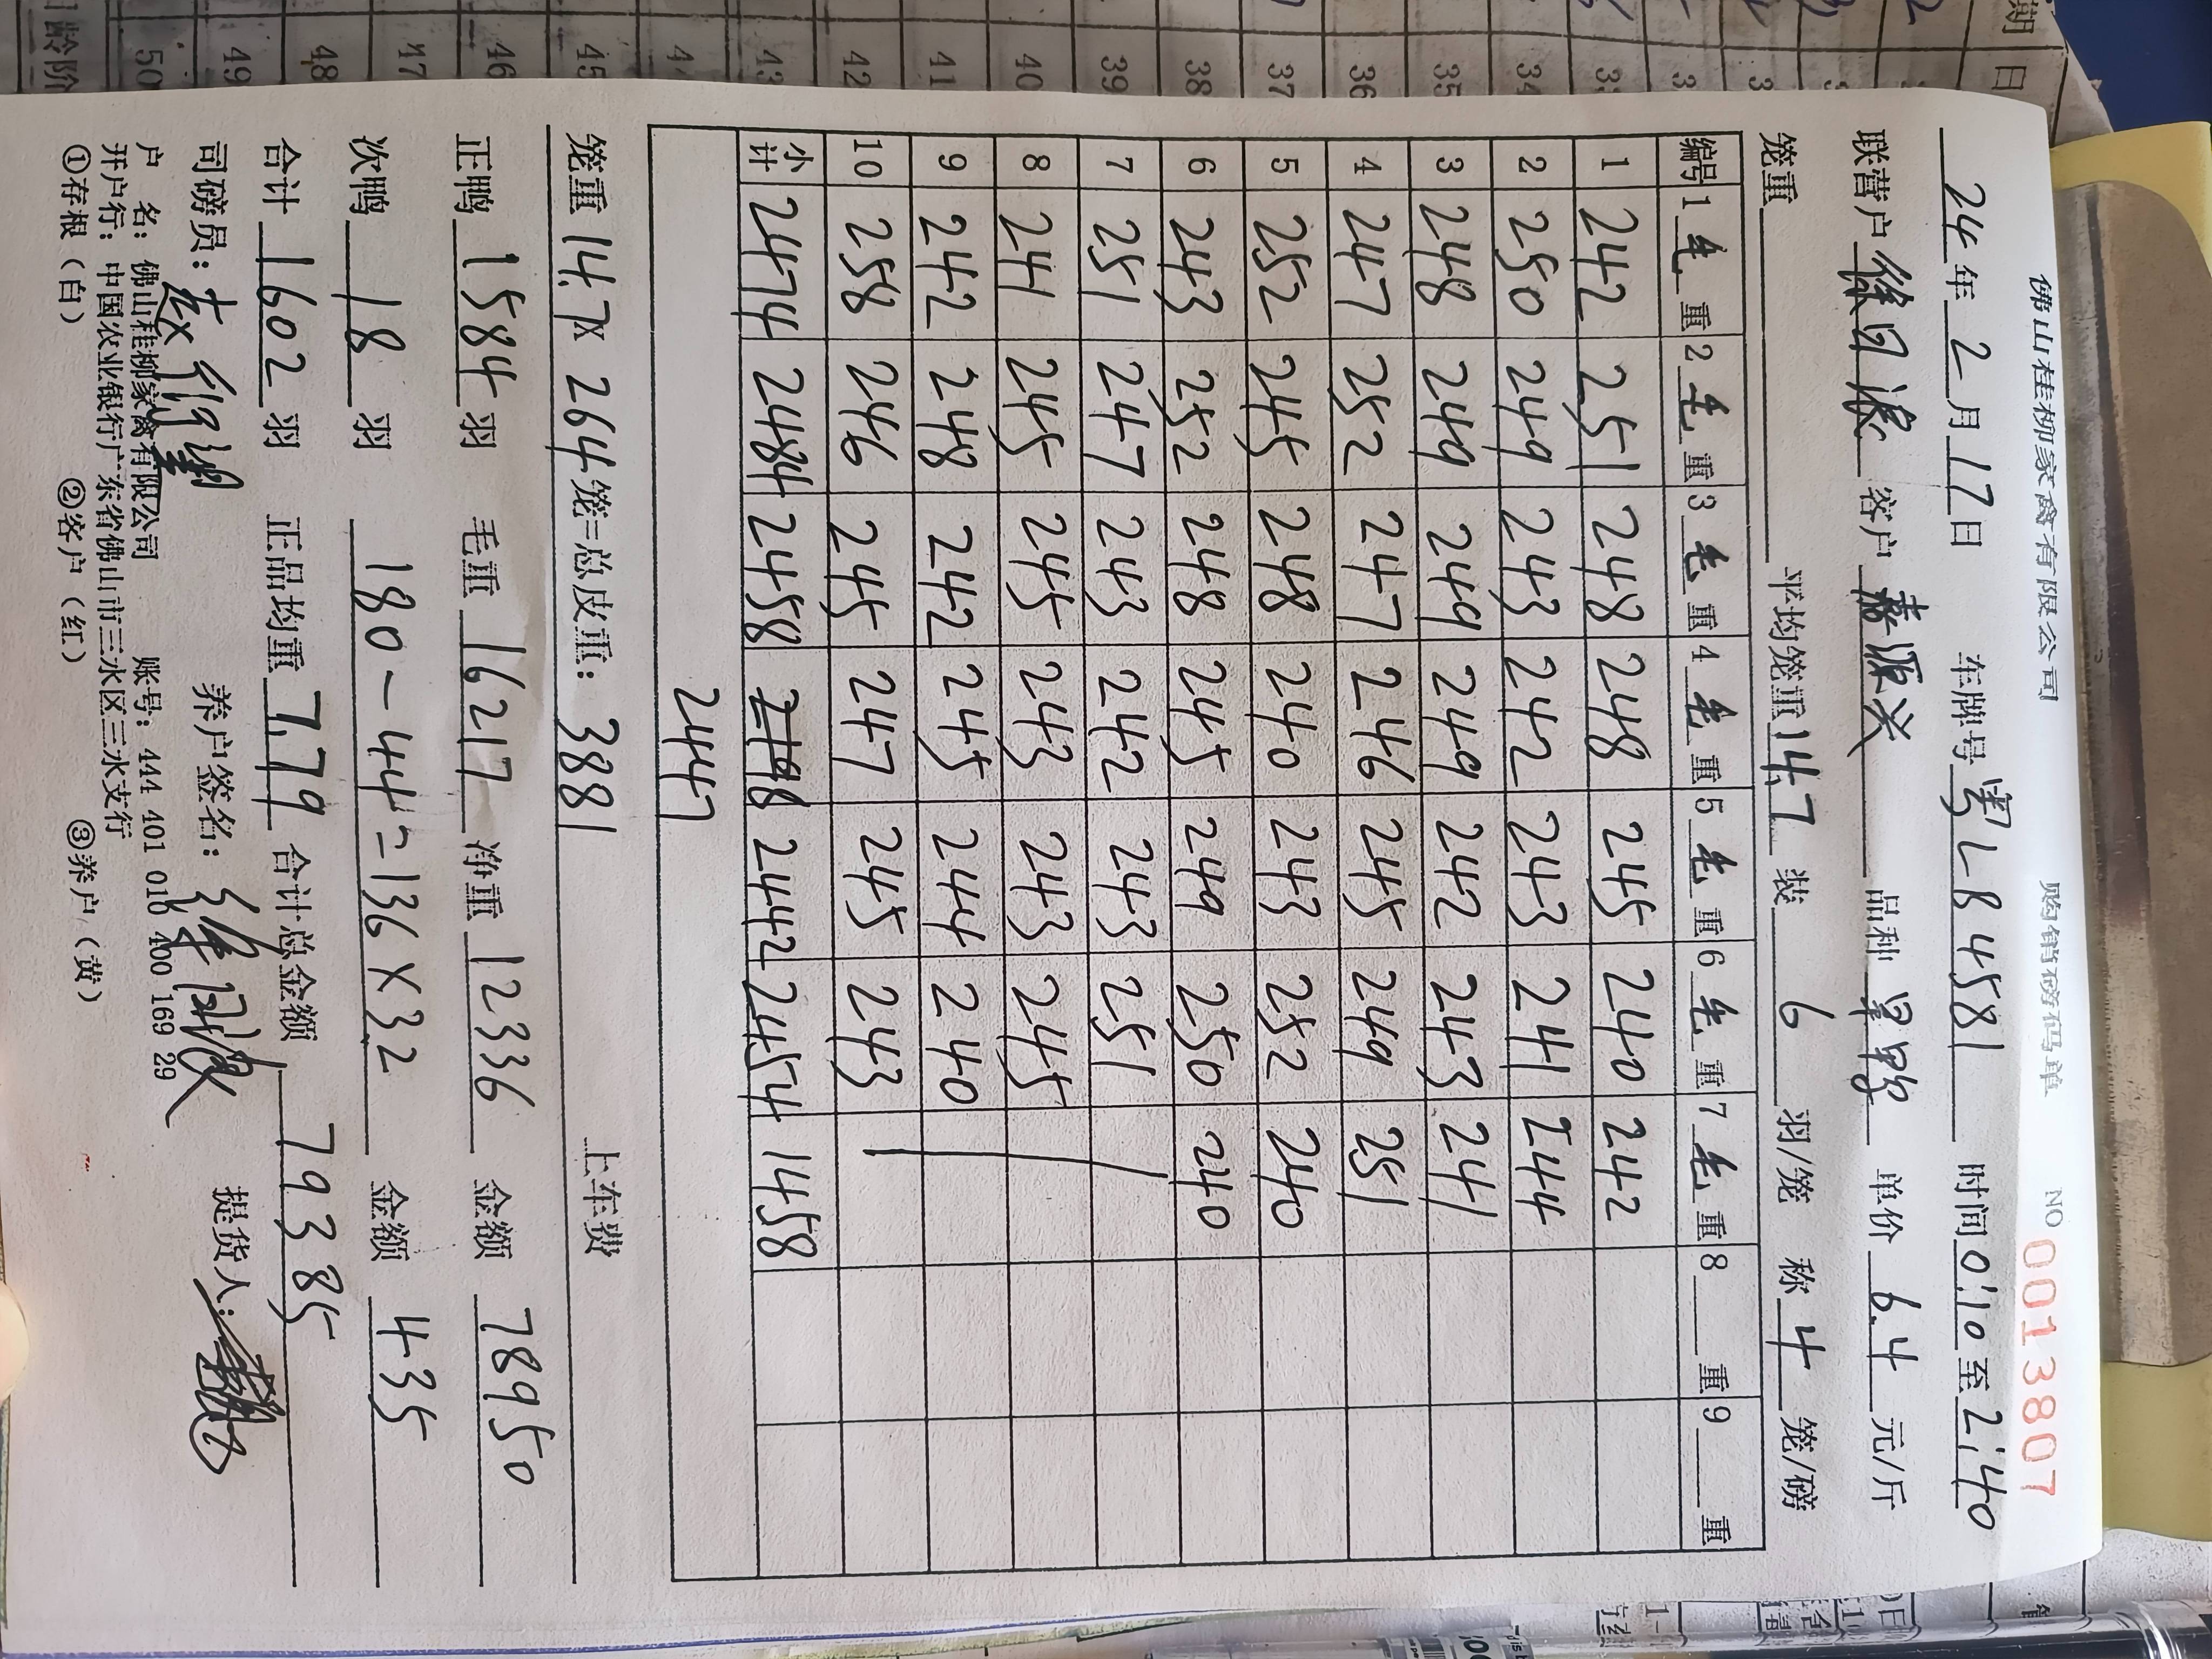 佛山桂柳家禽有限公司 购销磅码单 NO 0013807
24年2月17日 车牌号粤LB4581 时间0:10至2:40
联营户徐日 客户源兴 品种 单价6.4元/斤
笼重 平均笼重14.7 装6羽/笼 称4笼/磅
编号 1毛重 2毛重 3毛重 4毛重 5毛重 6毛重 7毛重 8 重 9 重
1 242 251 248 248 245 240 242
2 250 249 243 242 243 241 244
3 248 249 249 249 242 243 241
4 247 252 247 246 245 249 251
5 252 245 248 240 243 252 240
6 243 252 248 245 249 250 240
7 251 247 243 242 243 251
8 241 245 245 243 243 245
9 242 248 242 245 244 240
10 258 246 245 247 245 243
小计 2474 2484 2458 2442 2454 1458
2447
笼重14.7×264笼=总皮重：3881 上车费
正鸭1584羽 毛重16217 净重12336 金额78950
次鸭18羽 180-44=136×3.2 金额435
合计1602羽 正品均重7.79 合计总金额79385
司磅员： 养户签名： 提货人：
户 名：佛山桂柳家禽有限公司 账号：444 401 010 400 169 29
开户行：中国农业银行广东省佛山市三水区三水支行
①存根（白） ②客户（红） ③养户（黄）
期
日
3 3 3 34 35 36 37 38 39 40 41 42 43 4 45 46 47 48 49 50
龄阶